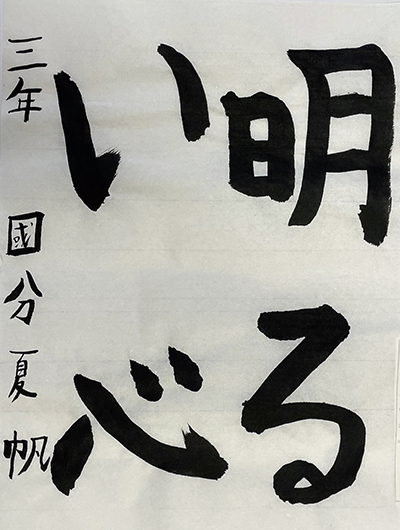 明る
い心
三年 國分夏帆